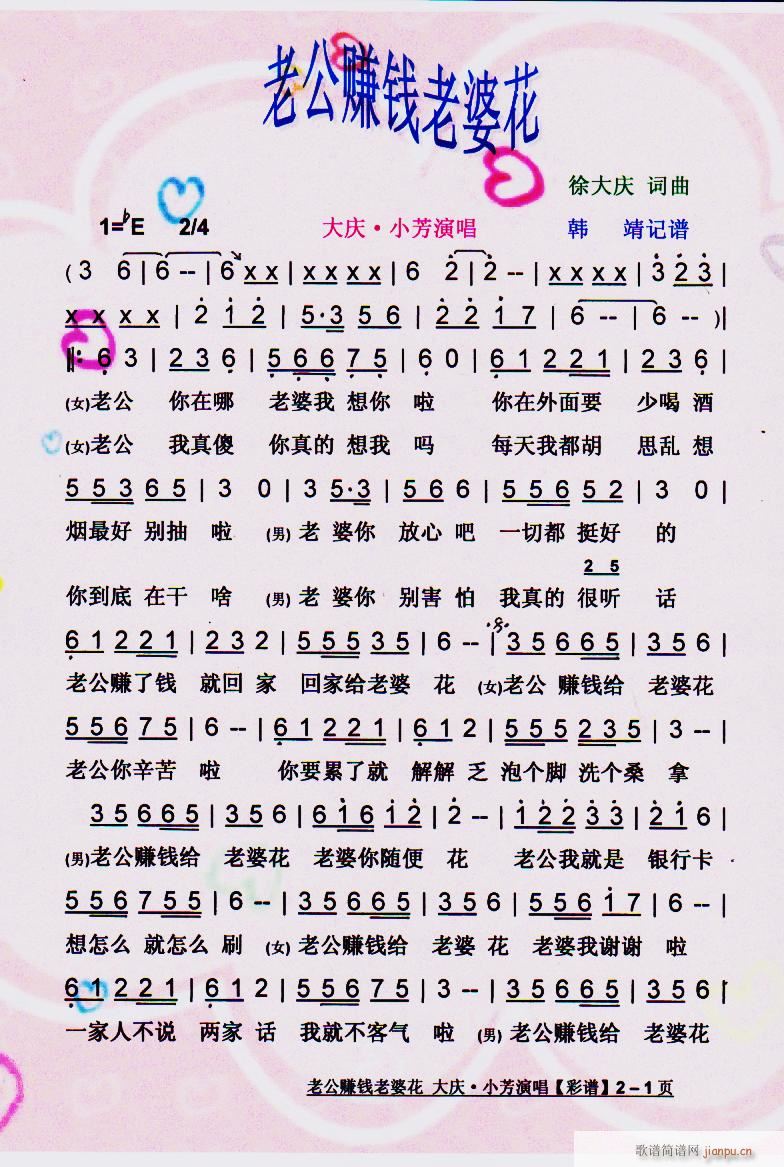 老公赚钱老婆花
徐大庆 词曲
1=♭E 2/4 大庆·小芳演唱 韩 靖记谱
( 3 6 | 6 -- | 6 x x | x x x x | 6 2 | 2 -- | x x x x | 3 2 3 |
x x x x | 2 1 2 | 5·3 5 6 | 2 2 1 7 | 6 -- | 6 -- )|
‖: 6 3 | 2 3 6 | 5 6 6 7 5 | 6 0 | 6 1 2 2 1 | 2 3 6 |
(女)老公 你在哪 老婆我 想你 啦 你在外面要 少喝 酒
(女)老公 我真傻 你真的 想我 吗 每天我都胡 思乱 想
5 5 3 6 5 | 3 0 | 3 5·3 | 5 6 6 | 5 5 6 5 2 | 3 0 |
烟最好 别抽 啦 (男) 老 婆你 放心 吧 一切都 挺好 的
2 5
你到底 在干 啥 (男) 老 婆你 别害 怕 我真的 很听 话
6 1 2 2 1 | 2 3 2 | 5 5 5 3 5 | 6 -- | 3 5 6 6 5 | 3 5 6 |
老公赚了钱 就回 家 回家给老婆 花 (女)老公 赚钱给 老婆花
5 5 6 7 5 | 6 -- | 6 1 2 2 1 | 6 1 2 | 5 5 5 2 3 5 | 3 -- |
老公你辛苦 啦 你要累了就 解解 乏 泡个脚 洗个桑 拿
3 5 6 6 5 | 3 5 6 | 6 1 6 1 2 | 2 -- | 1 2 2 3 3 | 2 1 6 |
(男)老公赚钱给 老婆花 老婆你随便 花 老公我就是 银行卡
5 5 6 7 5 5 | 6 -- | 3 5 6 6 5 | 3 5 6 | 5 5 6 1 7 | 6 -- |
想怎么 就怎么 刷 (女) 老公赚钱给 老婆 花 老婆我谢谢 啦
6 1 2 2 1 | 6 1 2 | 5 5 6 7 5 | 3 -- | 3 5 6 6 5 | 3 5 6 |
一家人不说 两家 话 我就不客气 啦 (男) 老公赚钱给 老婆花
老公赚钱老婆花 大庆·小芳演唱【彩谱】2－1页
歌谱简谱网 jianpu.cn